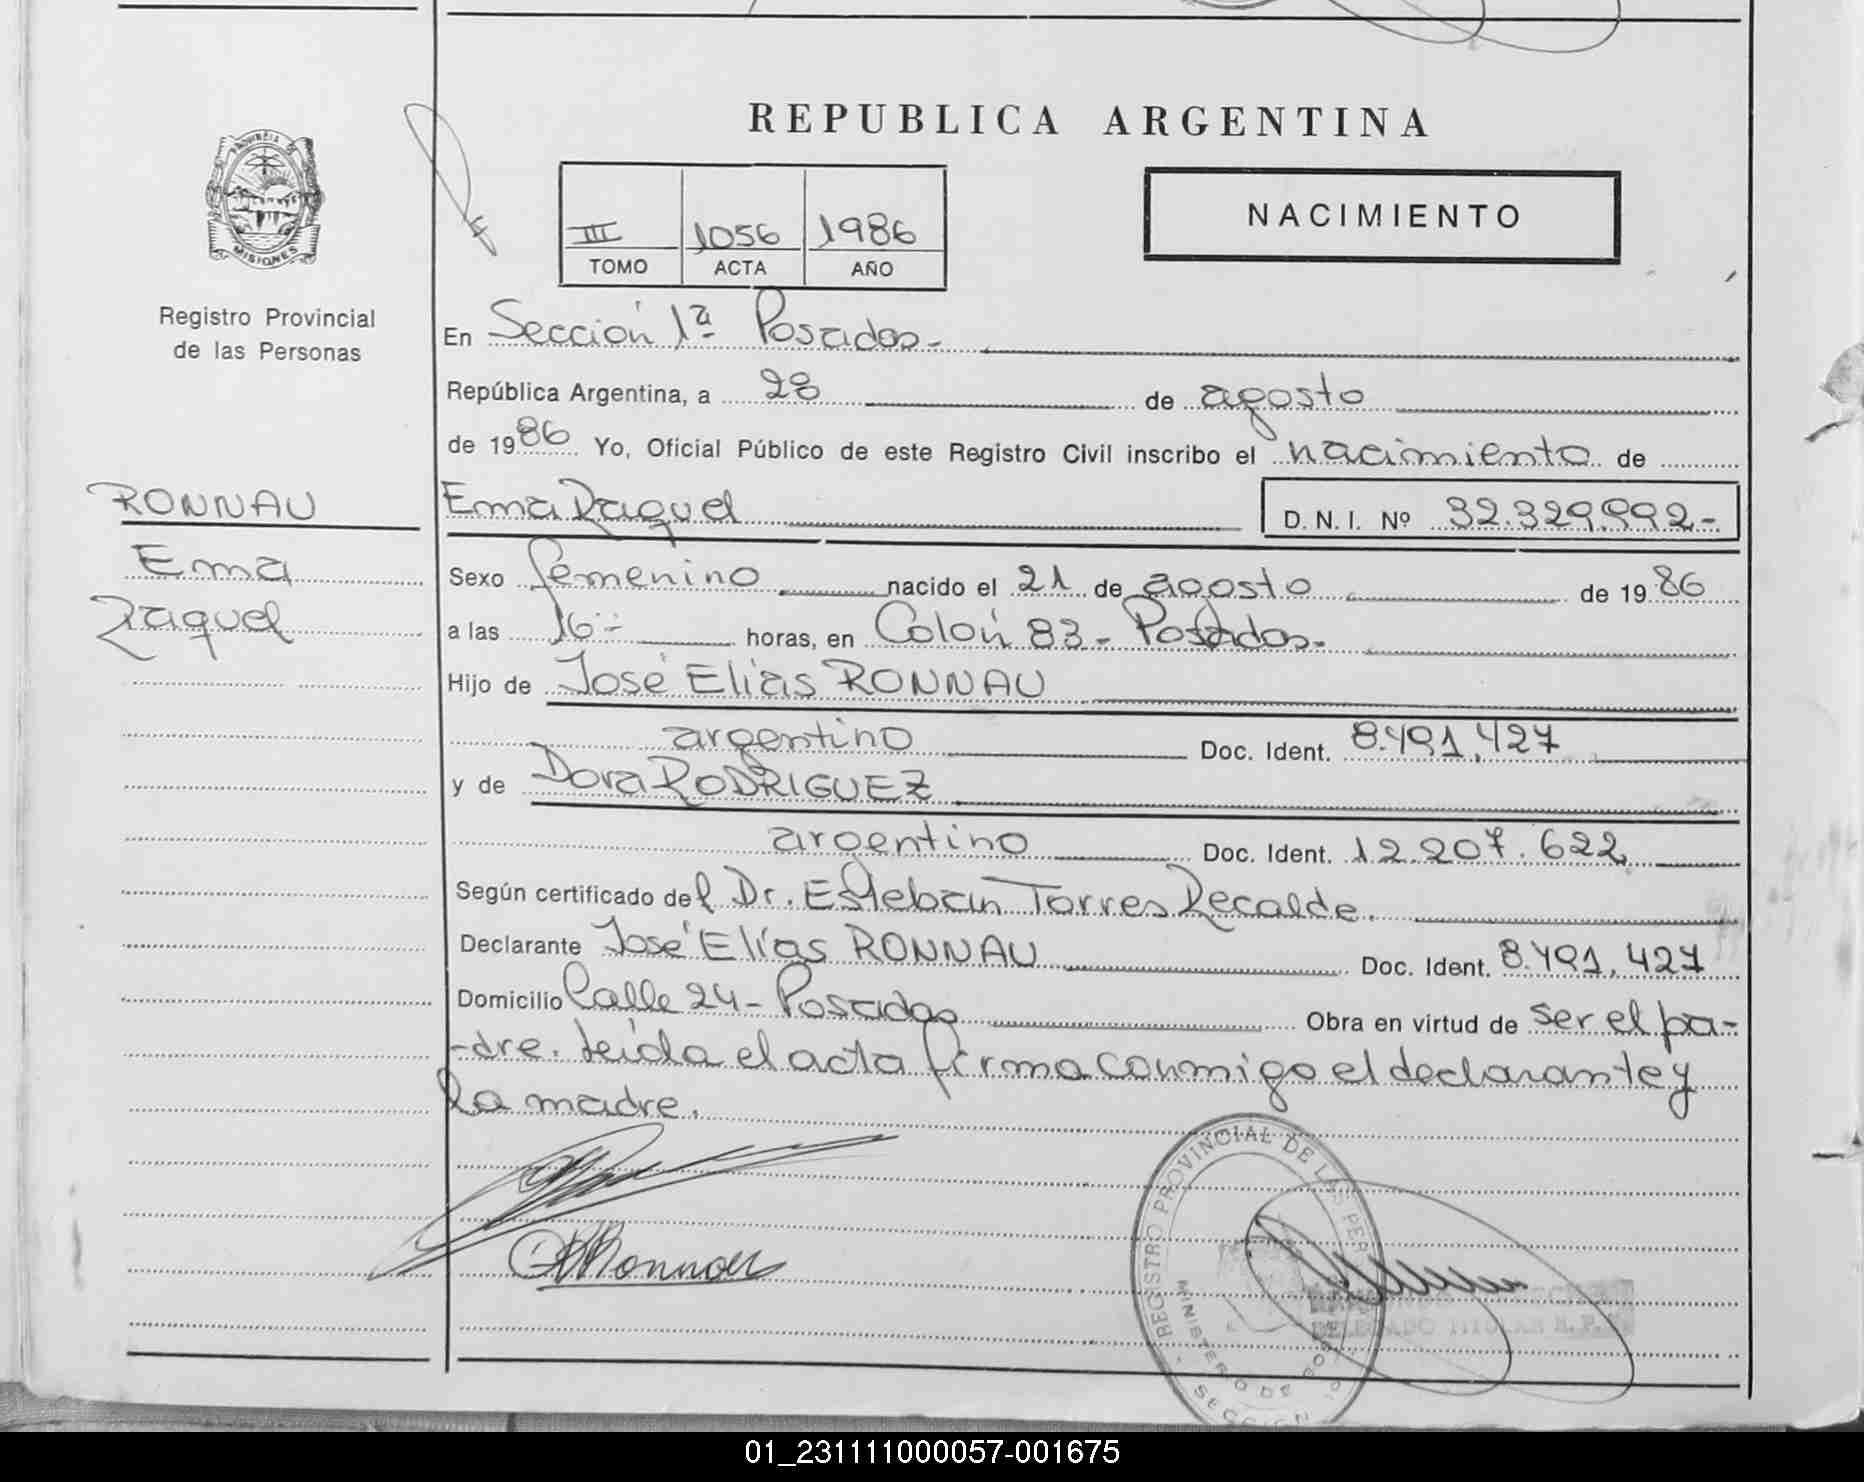 REPUBLICA ARGENTINA
PROVINCIA
MISIONES
Registro Provincial
de las Personas
III 1056 1986
TOMO ACTA AÑO
NACIMIENTO
En Sección 1ª Posadas-
República Argentina, a 28 de agosto
de 1986 Yo, Oficial Público de este Registro Civil inscribo el nacimiento de
RONNAU
Ema Raquel D.N.I. Nº 32.329.992-
Ema
Raquel
Sexo femenino nacido el 21 de agosto de 1986
a las 16- horas, en Colón 83- Posadas-
Hijo de José Elías RONNAU
argentino Doc. Ident. 8.491.427
y de Dora RODRIGUEZ
argentino Doc. Ident. 12.207.622
Según certificado del Dr. Esteban Torres Recalde.
Declarante José Elías RONNAU Doc. Ident. 8.491.427
Domicilio Calle 24- Posadas Obra en virtud de ser el pa-
-dre. Leída el acta firma conmigo el declarante y
la madre.
Ronnau
REGISTRO PROVINCIAL DE LAS PER
MINISTERIO DE GO
SECCION
DELEGADO TITULAR R.P.P.
01_231111000057-001675